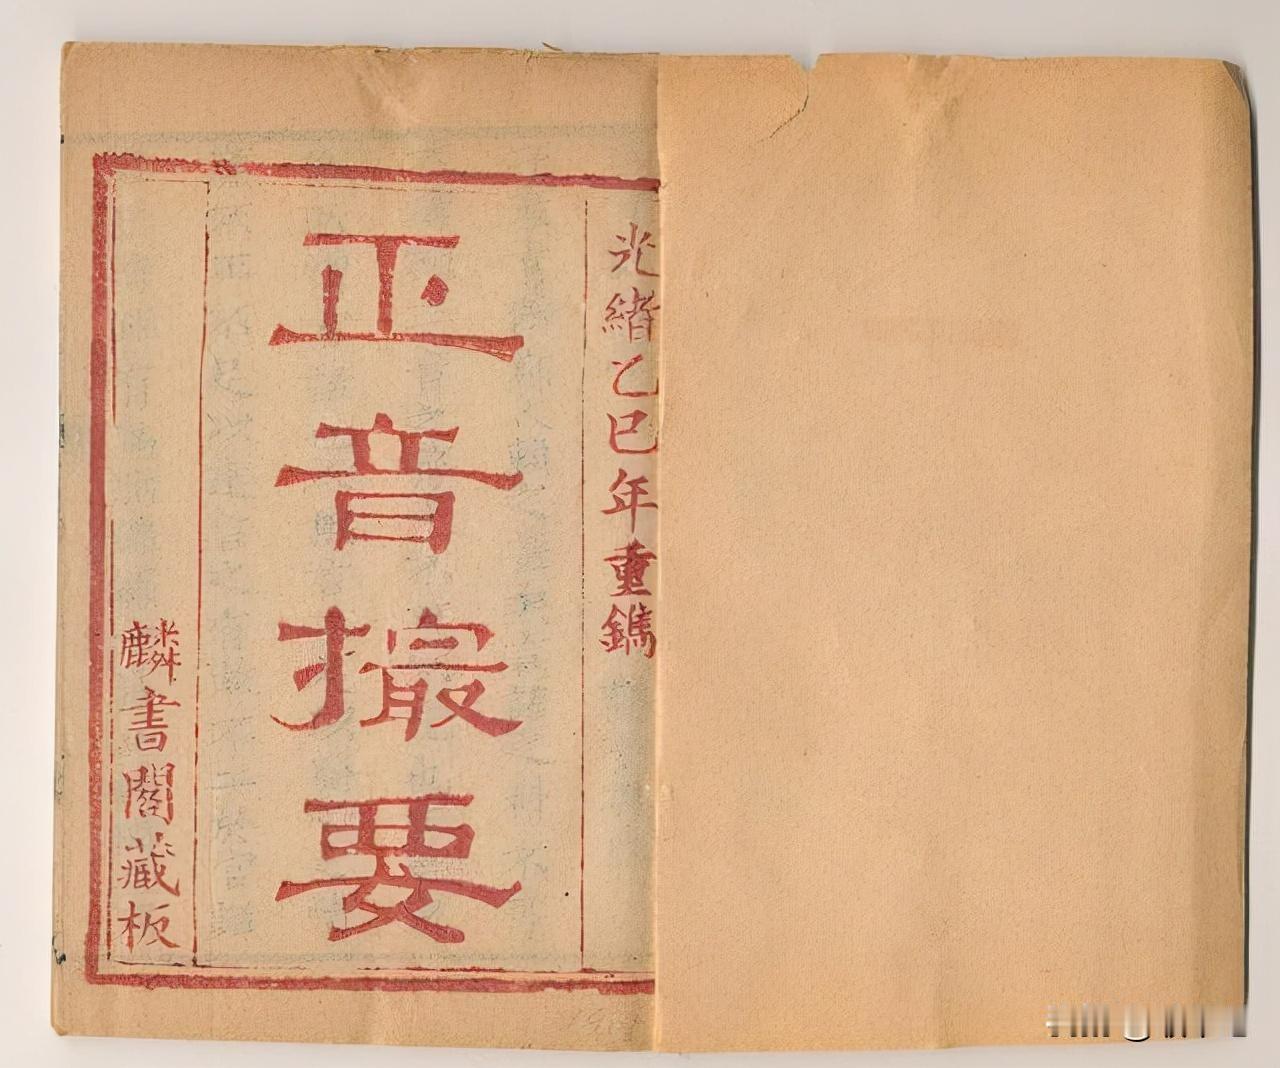 光緒乙巳年重鐫
正音撮要
麟書閣藏板